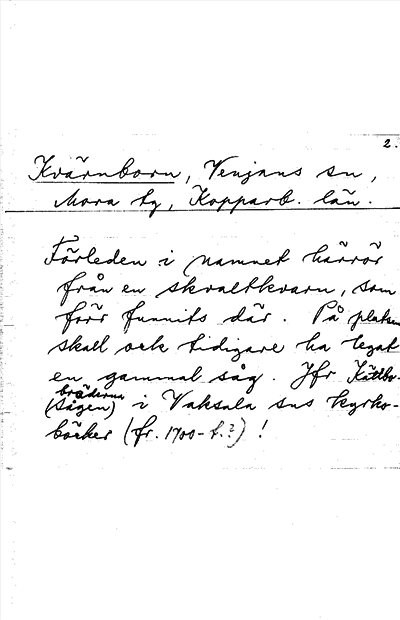 2.
Kvärnborn, Venjans sn,
Mora tg, Kopparb. län.
Förleden i namnet härrör
från en skvaltkvarn, som
förr funnits där. På platsen
skall ock tidigare ha legat
en gammal såg. Jfr Kättbo-
bräderna
(Sågen) i Vaksala sns kyrko-
böcker (fr. 1700-t.?)!